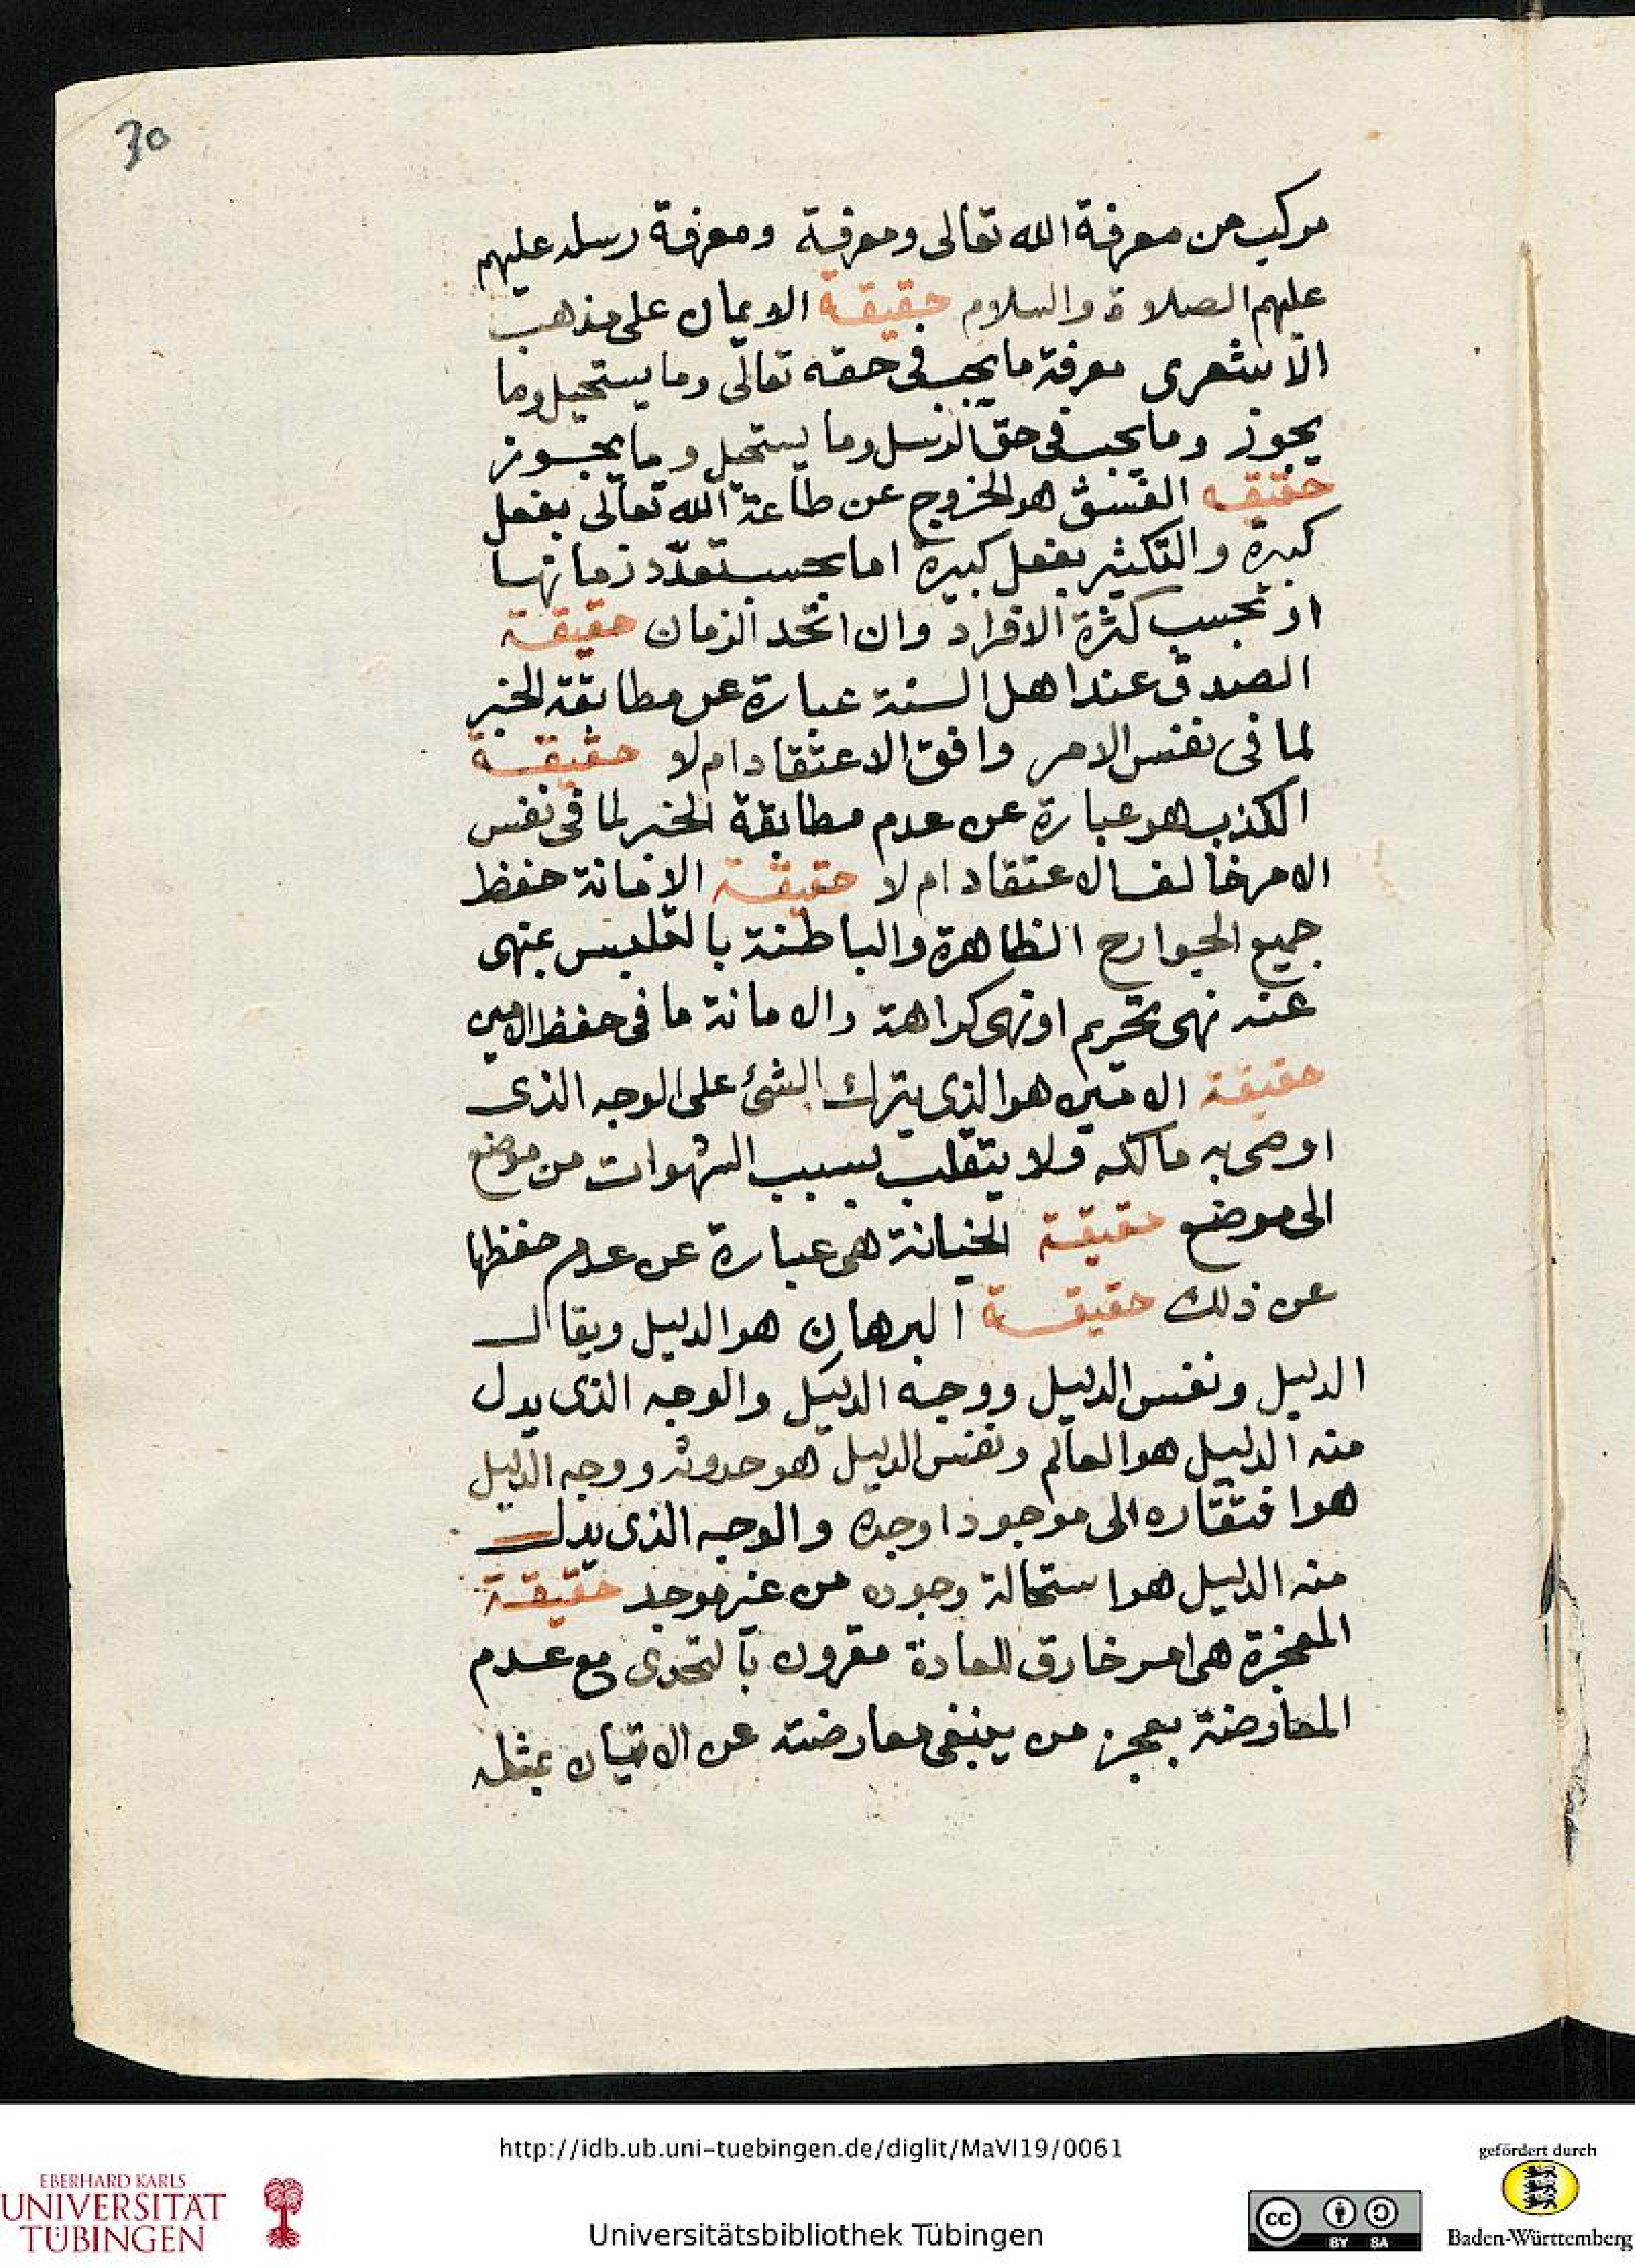 30
مركب من معرفة الله تعالى ومعرفة ومعرفة رسله عليهم
عليهم الصلاة والسلام حقيقة الايمان على مذهب
الاشعرى معرفة ما يجب فى حقه تعالى وما يستحيل وما
يجوز وما يجب فى حق الرسل وما يستحيل وما يجوز
حقيقه الفسق هو الخروج عن طاعة الله تعالى بفعل
كبيرة والتكثير بفعل كبيرة اما بحسب تعدد زمانها
او بحسب كثرة الافراد وان اتحد الزمان حقيقة
الصدق عند اهل السنة عبارة عن مطابقة الخبر
لما فى نفس الامر وافق الاعتقاد ام لا حقيقة
الكذب هو عبارة عن عدم مطابقة الخبر لما فى نفس
الامر خالف الاعتقاد ام لا حقيقة الامانة حفظ
جميع الجوارح الظاهرة والباطنة بالتلبيس بمنهى
عنه نهى تحريم او نهى كراهة والامانة ما فى حفظ الامين
حقيقة الامين هو الذى يترك الشئ على الوجه الذى
اوصى به مالكه ولا يتقلب بسبب الشهوات من موضع
الى موضع حقيقة الخيانة هى عبارة عن عدم حفظها
عن ذلك حقيقة البرهان هو الدليل ويقال
الدليل ونفس الدليل ووجه الدليل والوجه الذى يدل
منه الدليل هو العالم ونفس الدليل هو حدوثه ووجه الدليل
هو افتقاره الى موجود اوجده والوجه الذى يدل
منه الدليل هو استحالة وجوده من غير موجد حقيقة
المعجزة هى امر خارق للعادة مقرون بالتحدى مع عدم
المعارضة بعجز من يبغى معارضته عن الاتيان بمثله
http://idb.ub.uni-tuebingen.de/diglit/MaVI19/0061
Universitätsbibliothek Tübingen
EBERHARD KARLS
UNIVERSITÄT
TÜBINGEN
cc BY SA
gefördert durch
Baden-Württemberg